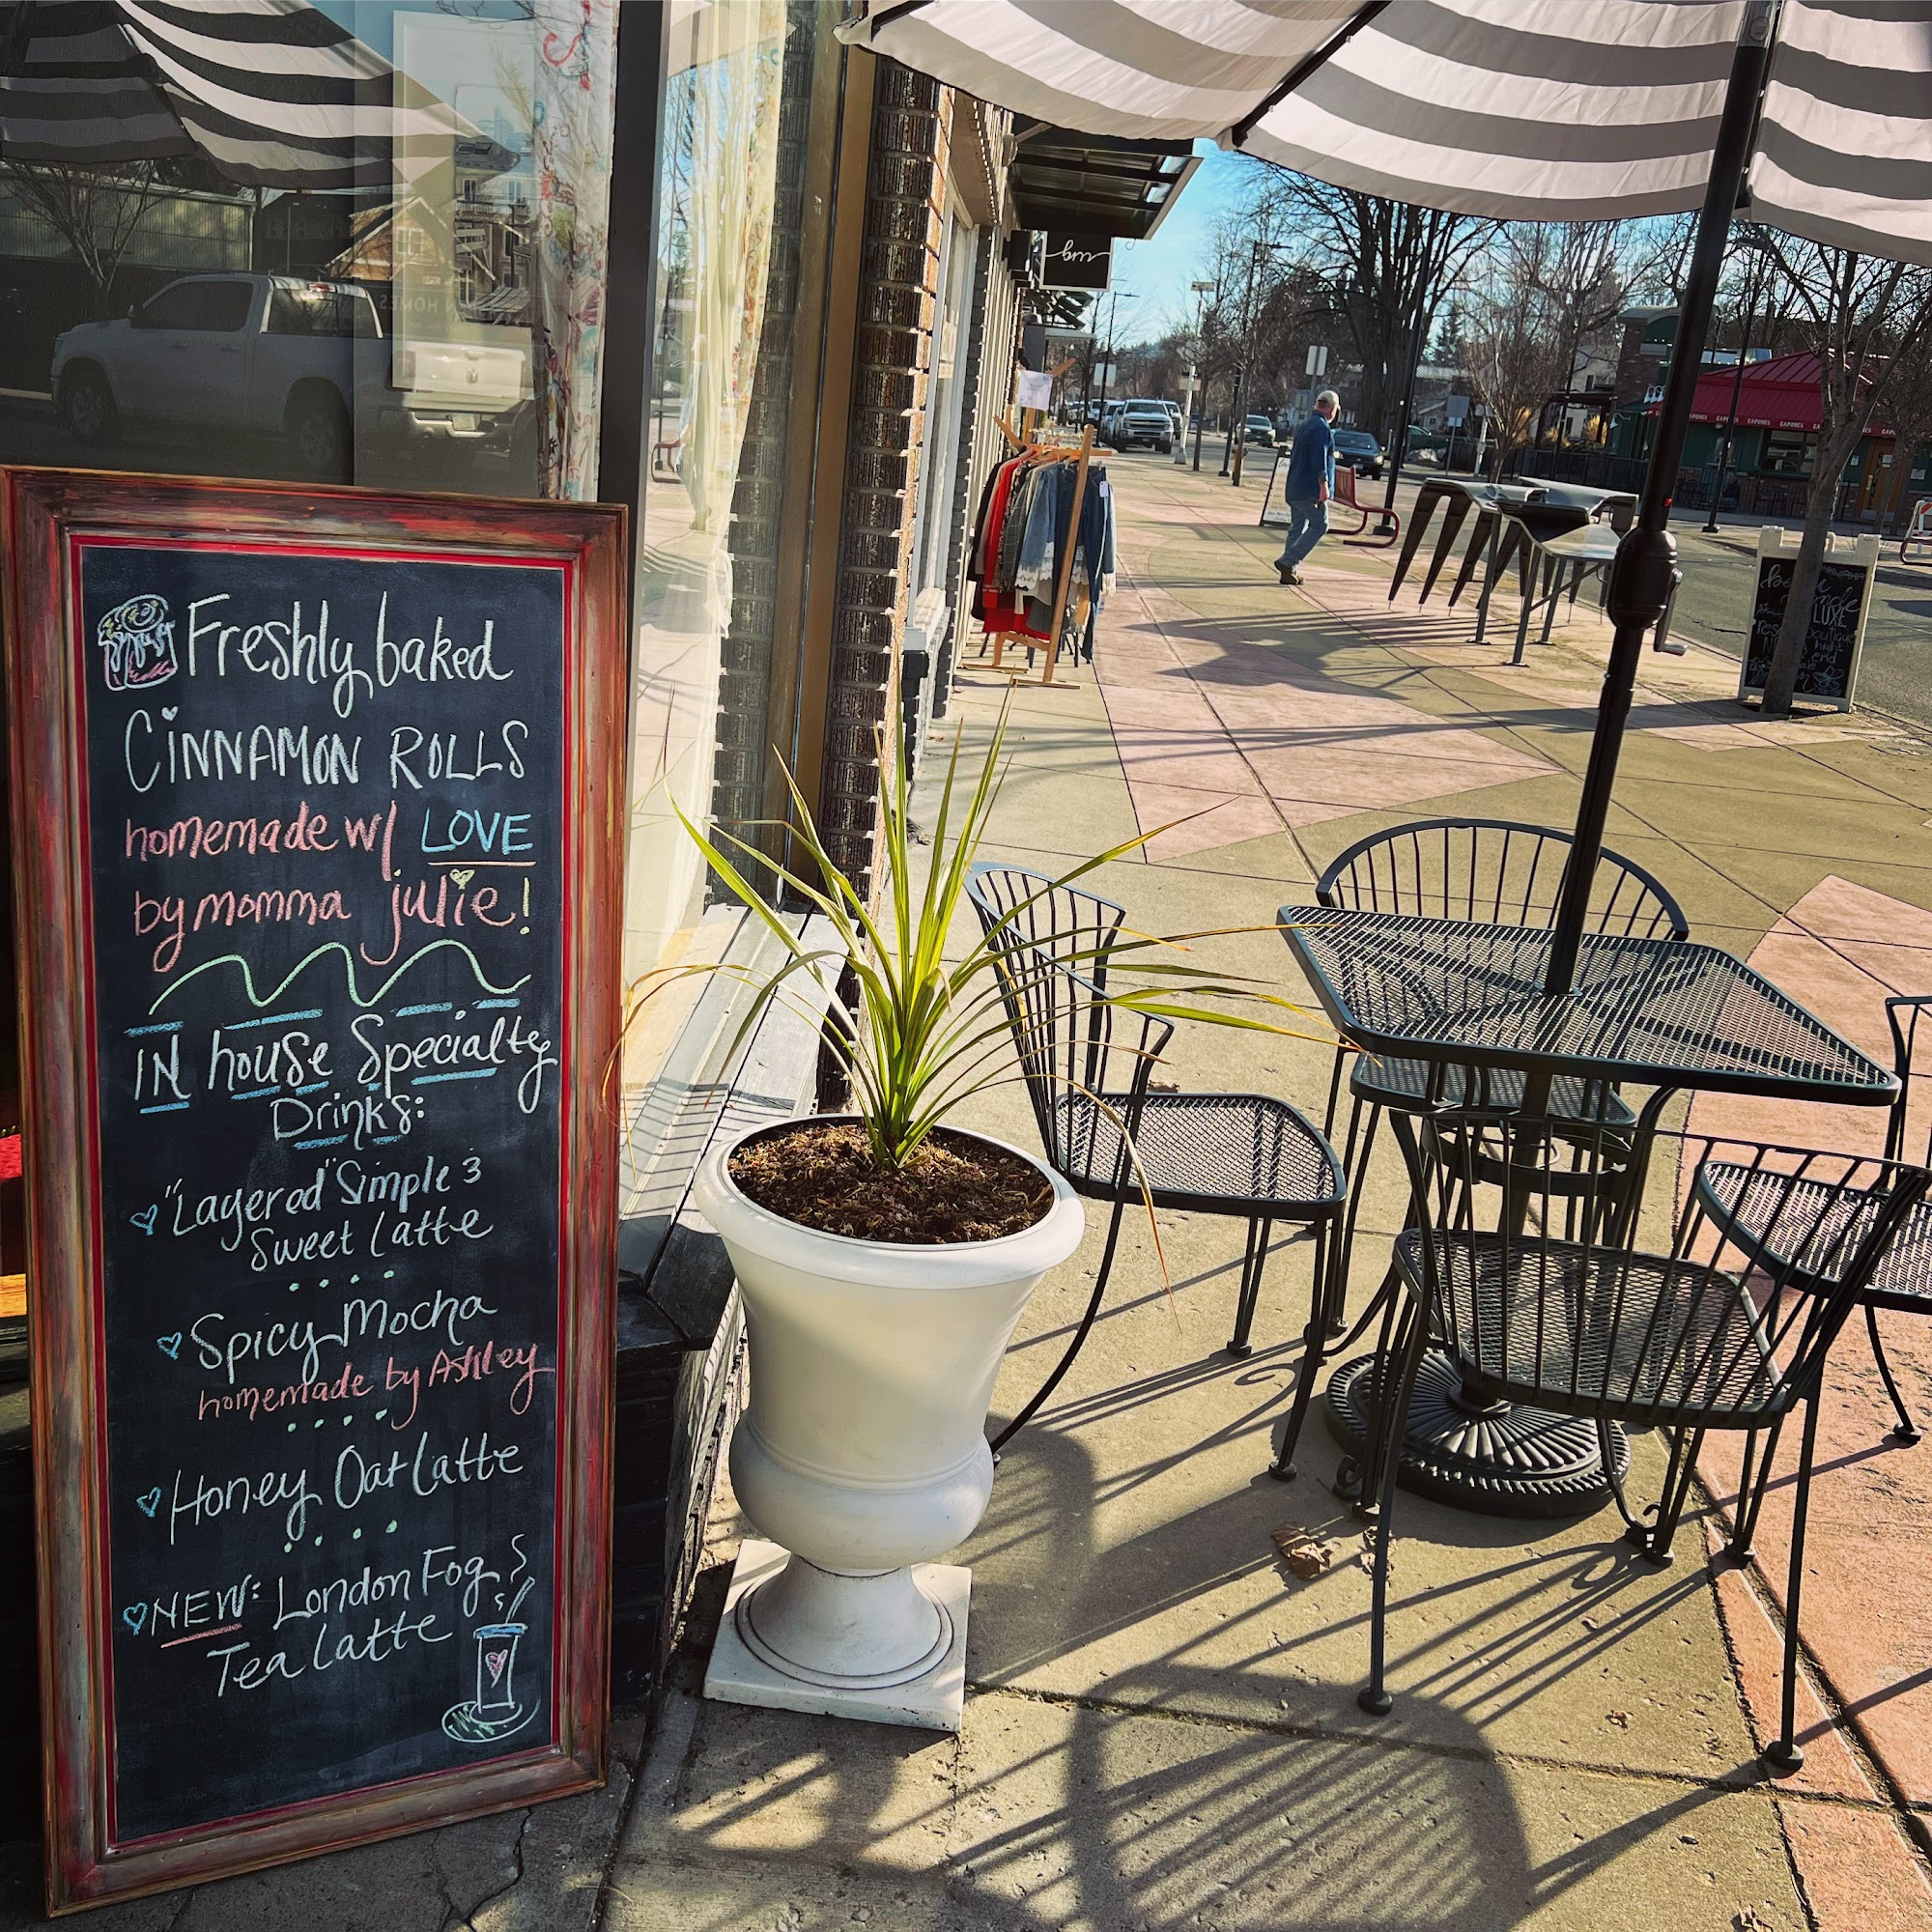 Freshly baked
CINNAMON ROLLS
homemade w/ LOVE
by momma julie!
IN house Specialty
Drinks:
"Layered" Simple 3
Sweet Latte
Spicy Mocha
homemade by Ashley
Honey Oat Latte
NEW: London Fog
Tea Latte
CAPONES CAPONES CAPONES
LUXE
boutique